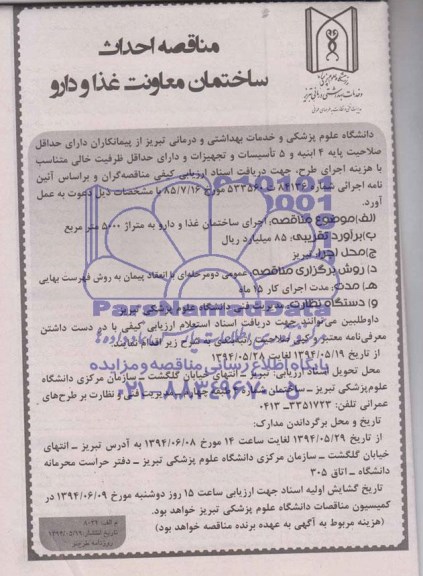 مناقصه احداث
ساختمان معاونت غذا و دارو
دانشگاه علوم پزشکی و خدمات بهداشتی و درمانی تبریز از پیمانکاران دارای حداقل
صلاحیت پایه ۴ ابنیه و ۵ تأسیسات و تجهیزات و دارای حداقل ظرفیت خالی متناسب
با هزینه اجرای طرح، جهت دریافت اسناد ارزیابی کیفی مناقصه‌گران و براساس آئین
نامه اجرائی شماره ۸۴۱۳۶/ت ۳۳۵۶۰ مورخ ۸۵/۷/۱۶ با مشخصات ذیل دعوت به عمل
آورد.
الف)موضوع مناقصه: اجرای ساختمان غذا و دارو به متراژ ۵۰۰۰ متر مربع
ب)برآورد تقریبی: ۸۵ میلیارد ریال
ج)محل اجرا: تبریز
د) روش برگزاری مناقصه عمومی دومرحله‌ای با انعقاد پیمان به روش فهرست بهایی
هـ) مدت: مدت اجرای کار ۱۵ ماه
و) دستگاه نظارت: مدیریت فنی دانشگاه علوم پزشکی تبریز
داوطلبین می‌توانند جهت دریافت اسناد استعلام ارزیابی کیفی با در دست داشتن
معرفی‌نامه معتبر و کپی صلاحیت رتبه‌بندی به شرح زیر اقدام نمایند.
از تاریخ ۱۳۹۴/۰۵/۱۹ لغایت ۱۳۹۴/۰۵/۲۸
محل تحویل اسناد ارزیابی: تبریز ـ انتهای خیابان گلگشت ـ سازمان مرکزی دانشگاه
علوم‌پزشکی تبریز ـ ساختمان شماره ۲ طبقه چهارم مدیریت فنی و نظارت بر طرح‌های
عمرانی تلفن: ۳۳۵۱۷۲۳ـ۰۴۱۳
تاریخ و محل برگرداندن مدارک:
از تاریخ ۱۳۹۴/۰۵/۲۹ لغایت ساعت ۱۴ مورخ ۱۳۹۴/۰۶/۰۸ به آدرس تبریز ـ انتهای
خیابان گلگشت ـ سازمان مرکزی دانشگاه علوم پزشکی تبریز ـ دفتر حراست محرمانه
دانشگاه ـ اتاق ۳۰۵
تاریخ گشایش اولیه اسناد جهت ارزیابی ساعت ۱۵ روز دوشنبه مورخ ۱۳۹۴/۰۶/۰۹ در
کمیسیون مناقصات دانشگاه علوم پزشکی تبریز خواهد بود.
(هزینه مربوط به آگهی به عهده برنده مناقصه خواهد بود)
ParsNamadData
پایگاه اطلاع رسانی مناقصه و مزایده
۰۲۱-۸۸۳۴۹۶۷۰-۵